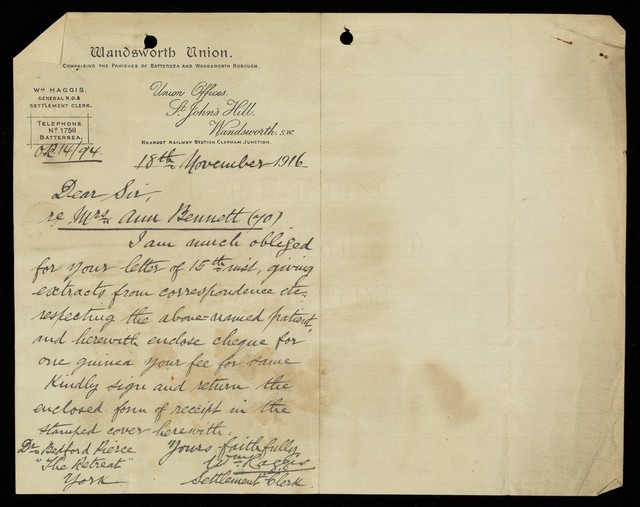 Wandsworth Union.
Comprising the Parishes of Battersea and Wandsworth Borough.
Wm HAGGIS,
GENERAL R.O. &
SETTLEMENT CLERK.
TELEPHONE
No 1758
BATTERSEA.
14/94.
Union Offices,
St John's Hill,
Wandsworth. S.W.
Nearest Railway Station Clapham Junction.
18th November 1916.
Dear Sir,
re Mrs. Ann Bennett (70)
I am much obliged
for your letter of 15th inst, giving
extracts from correspondence etc.
respecting the above-named patient,
and herewith enclose cheque for
one guinea your fee for same
Kindly sign and return the
enclosed form of receipt in the
stamped cover herewith.
Yours faithfully
Wm Haggis
Settlement Clerk
Dr Bedford Pierce
"The Retreat"
York